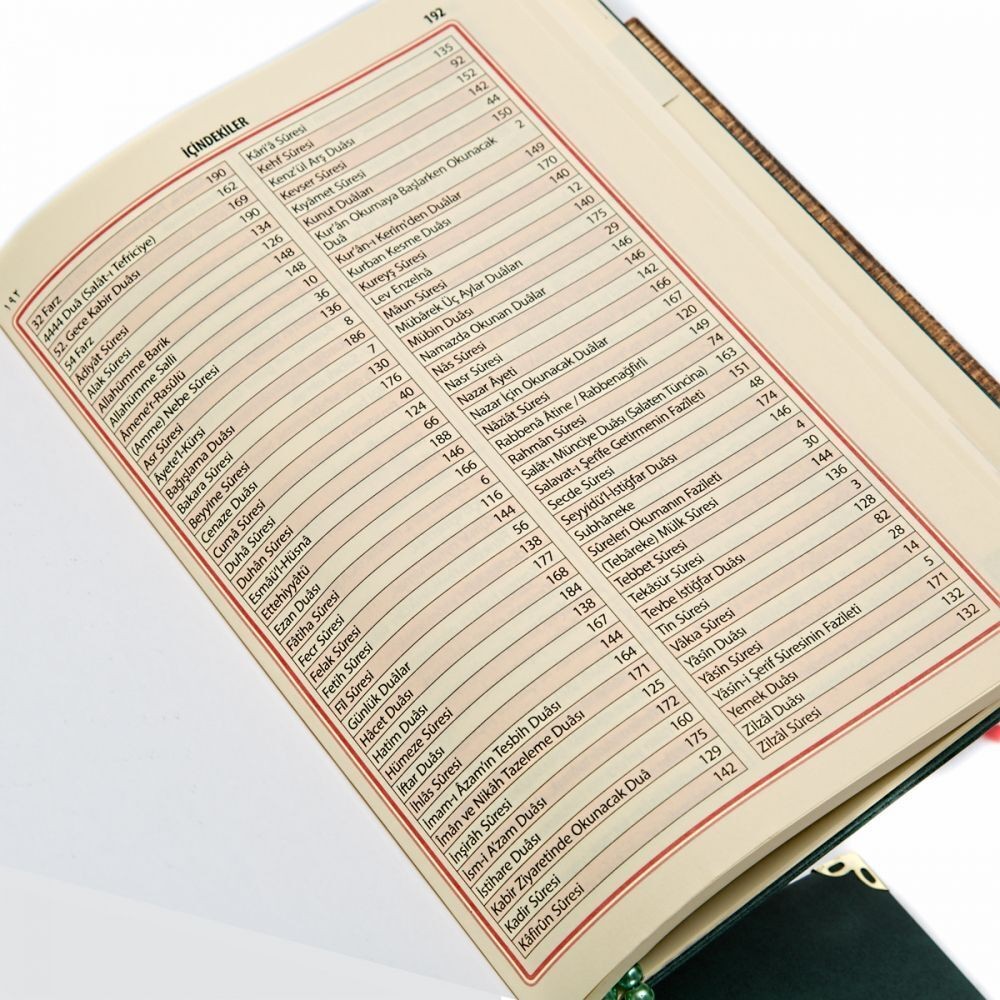 192
İÇİNDEKİLER
١٩٢
32 Farz 190
4444 Duâ (Salât-ı Tefriciye) 162
52. Gece Kabir Duâsı 169
54 Farz 190
Âdiyât Sûresi 134
Alak Sûresi 126
Allahümme Barik 148
Allahümme Salli 148
Âmene'r-Rasûlü 10
(Amme) Nebe Sûresi 36
Asr Sûresi 136
Âyete'l-Kürsi 8
Bağışlama Duâsı 186
Bakara Sûresi 7
Beyyine Sûresi 130
Cenaze Duâsı 176
Cumâ Sûresi 40
Duhâ Sûresi 124
Duhân Sûresi 66
Esmâü'l-Hüsnâ 188
Ettehiyyâtü 146
Ezan Duâsı 166
Fâtiha Sûresi 6
Fecr Sûresi 116
Felak Sûresi 144
Fetih Sûresi 56
Fil Sûresi 138
Günlük Duâlar 177
Hâcet Duâsı 168
Hatim Duâsı 184
Hümeze Sûresi 138
İftar Duâsı 167
İhlâs Sûresi 144
İmam-ı Âzam'ın Tesbih Duâsı 164
Îmân ve Nikâh Tazeleme Duâsı 171
İnşirâh Sûresi 125
İsm-i A'zam Duâsı 172
İstihare Duâsı 160
Kabir Ziyaretinde Okunacak Duâ 175
Kadir Sûresi 129
Kâfirûn Sûresi 142
Kâri'â Sûresi 135
Kehf Sûresi 92
Kenz'ül Arş Duâsı 152
Kevser Sûresi 142
Kıyâmet Sûresi 44
Kunut Duâları 150
Kur'ân Okumaya Başlarken Okunacak 2
Duâ
Kur'ân-ı Kerîm'den Duâlar 149
Kurban Kesme Duâsı 170
Kureyş Sûresi 140
Lev Enzelnâ 12
Mâun Sûresi 140
Mübârek Üç Aylar Duâları 175
Mübin Duâsı 29
Namazda Okunan Duâlar 146
Nâs Sûresi 146
Nasr Sûresi 142
Nazar Âyeti 166
Nazar İçin Okunacak Duâlar 167
Nâziât Sûresi 120
Rabbenâ Âtine / Rabbenağfirli 149
Rahmân Sûresi 74
Salât-ı Münciye Duâsı (Salaten Tüncina) 163
Salavat-ı Şerife Getirmenin Fazîleti 151
Secde Sûresi 48
Seyyidü'l-İstiğfar Duâsı 174
Subhâneke 146
Sûreleri Okumanın Fazîleti 4
(Tebâreke) Mülk Sûresi 30
Tebbet Sûresi 144
Tekâsür Sûresi 136
Tevbe İstiğfar Duâsı 3
Tin Sûresi 128
Vâkıa Sûresi 82
Yâsin Duâsı 28
Yâsîn Sûresi 14
Yâsîn-i Şerif Sûresinin Fazileti 5
Yemek Duâsı 171
Zilzâl Duâsı 132
Zilzâl Sûresi 132